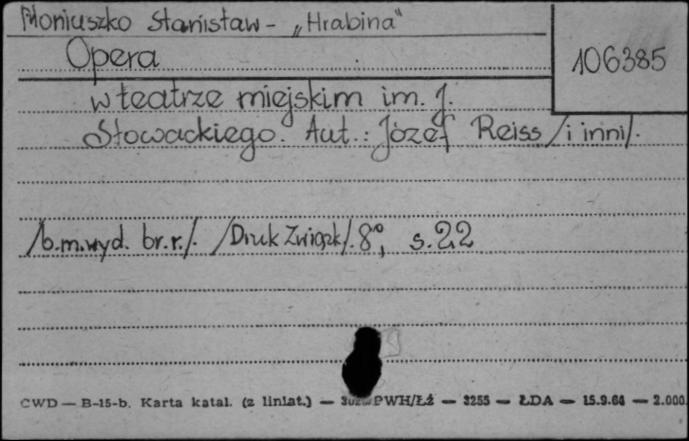 Moniuszko Stanisław - „Hrabina"
Opera
106385
w teatrze miejskim im. J.
Słowackiego. Aut.: Józef Reiss /i inni/.
/b.m.wyd. br.r./. /Druk Związk/. 8°, s. 22
CWD — B-15-b. Karta katal. (z liniat.) — PWH/Łź — 3255 — ŁDA — 15.9.64 — 2.000.